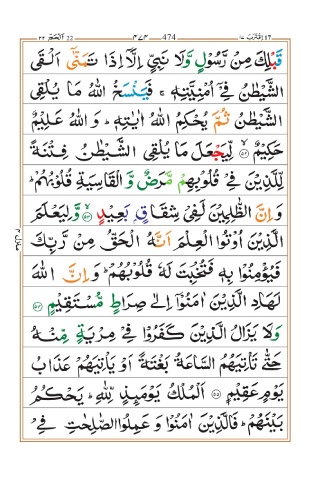 اقترب ١٧ 474 ٤٧٤ الحج 22 ٢٢
قَبْلِكَ مِنْ رَّسُوْلٍ وَّلَا نَبِيٍّ اِلَّاۤ اِذَا تَمَنّٰۤى اَلْقَى
الشَّيْطٰنُ فِيْۤ اُمْنِيَّتِهٖ ۚ فَيَنْسَخُ اللّٰهُ مَا يُلْقِى
الشَّيْطٰنُ ثُمَّ يُحْكِمُ اللّٰهُ اٰيٰتِهٖ ؕ وَ اللّٰهُ عَلِيْمٌ
حَكِيْمٌ ۙ۝۵۲ لِّيَجْعَلَ مَا يُلْقِى الشَّيْطٰنُ فِتْنَةً
لِّلَّذِيْنَ فِيْ قُلُوْبِهِمْ مَّرَضٌ وَّ الْقَاسِيَةِ قُلُوْبُهُمْ ؕ
وَ اِنَّ الظّٰلِمِيْنَ لَفِيْ شِقَاقٍۭ بَعِيْدٍ ۙ۝۵۳ وَّ لِيَعْلَمَ
الَّذِيْنَ اُوْتُوا الْعِلْمَ اَنَّهُ الْحَقُّ مِنْ رَّبِّكَ
فَيُؤْمِنُوْا بِهٖ فَتُخْبِتَ لَهٗ قُلُوْبُهُمْ ؕ وَ اِنَّ اللّٰهَ
لَهَادِ الَّذِيْنَ اٰمَنُوْۤا اِلٰى صِرَاطٍ مُّسْتَقِيْمٍ ۝۵۴
وَ لَا يَزَالُ الَّذِيْنَ كَفَرُوْا فِيْ مِرْيَةٍ مِّنْهُ
حَتّٰى تَاْتِيَهُمُ السَّاعَةُ بَغْتَةً اَوْ يَاْتِيَهُمْ عَذَابُ
يَوْمٍ عَقِيْمٍ ۝۵۵ اَلْمُلْكُ يَوْمَىِٕذٍ لِّلّٰهِ ؕ يَحْكُمُ
بَيْنَهُمْ ؕ فَالَّذِيْنَ اٰمَنُوْا وَ عَمِلُوا الصّٰلِحٰتِ فِيْ